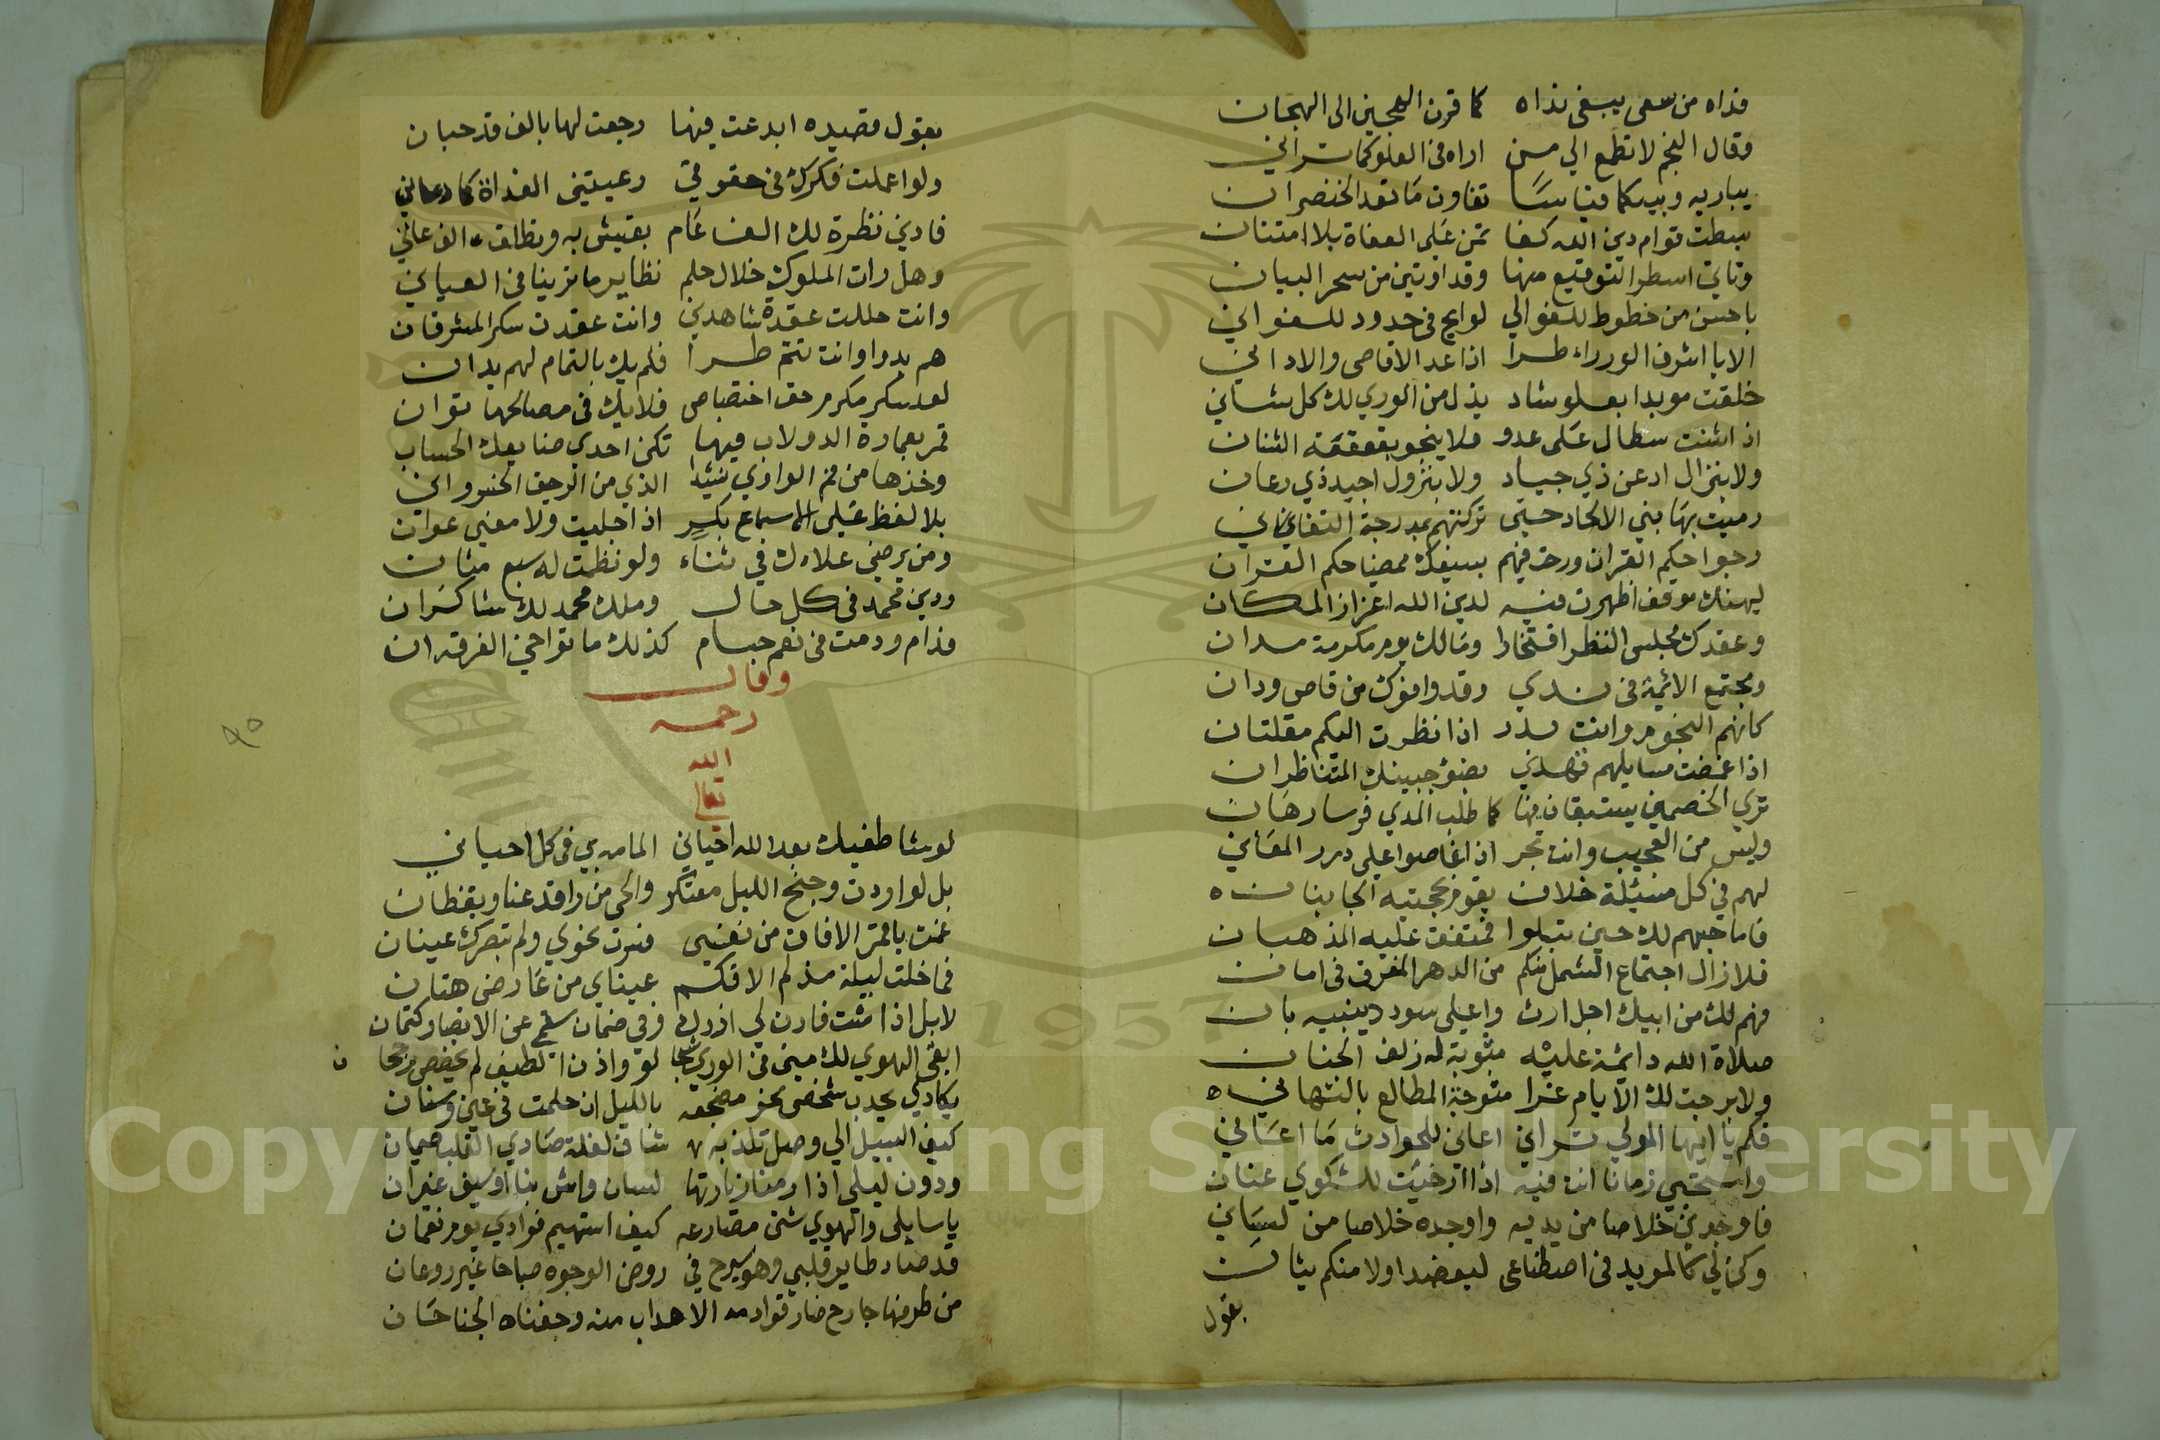 فداه من سعى يبغى نداه كما قرن الهجين الى الهجان
وقال النجم لا تطمع الي من اراه فى العلو كما تراني
يباريه وبينكما قياسا تفاوت ما تعد الخنصران
بسطت قوام دين الله كفا تمن على العفاة بلا امتنان
وتاتي اسطر التوقيع منها وقد اوتين من سحر البيان
باحسن من خطوط للغوالي لوايح فى خدود للغواني
الا يا اشرف الوزراء طرا اذا عد الاقاصى والاداني
خلقت مويدا بعلو شاد يذل من الوري لك كل شاني
اذا اشنت سطال على عدو فلا ينجو بقعقعة الشنان
ولا بنزال ادعن ذي جياد ولا بنزول اجيد ذي رعان
رميت بها بني الالحاد حتى تركتهم بمدرجة التفاني
رجوا حكم القران ورحت فيهم بسيفك ممضيا حكم القران
ليهنك موقف اظهرت فيه لدين الله اعزاز المكان
وعقدك مجلس النظر افتخارا ومالك يوم مكرمة مدان
ومجتمع الائمة فى ندي وقد وافوك من قاص ودان
كانهم النجوم وانت بدر اذا نظرت اليكم مقلتان
اذا غمضت مسايلهم فتهدي بضوء جبينك المتناظران
تري الخصمين يستبقان فيها كما طلب المدي فرسا رهان
وليس من العجيب وانت بحر اذا غاصوا على درر المعاني
لهم في كل مسئلة خلاف يقوم بحجتيه الجانبان
فاما حبهم لك حين يتلوا فمتفق عليه المذهبان
فلا زال اجتماع الشمل منكم من الدهر المفرق فى امان
فهم لك من ابيك اجل ارث واعلى سودد يبنيه بان
صلاة الله دائمة عليه مثوبة له زلف الجنان
ولا برحت لك الايام غرا متوجة المطالع بالتهاني
فكم يا ايها المولي تراني اعاني للحوادث ما اعاني
واستحيي زمانا انت فيه اذا ارخيت للشكوي عنان
فاوجدني خلاصا من يديه واوجده خلاصا من لساني
وكن لي كالمويد فى اصطناعى ليعضد اولا منكم بثان
بقول
بقول قصيدة ابدعت فيها رجعت لها بالف قد حبان
ولو اعملت فكرك فى حقوقي رعيتني الغداة كما رعاني
فادني نظرة لك الف عام بعيش به وتطلق الف عاني
وهل رات الملوك خلال حلم نظاير ما ترينا فى العيان
وانت حللت عقدة شاهدي وانت عقدت سكر المشرقان
هم بدوا وانت تتم طرا فلم يك بالتمام لهم يدان
لعسكر مكرم حق اختصاص فلا يك فى مصالحها توان
فمر بعمارة الدولاب فيها تكن احدي صنايعك الحسان
وخذها من فم الراوي نشيدا الذي من الرحيق الخسرواني
بلا لفظ على الاسماع بكر اذا جليت ولا معني عوان
ومن يرضي علاءك في ثناء ولو نظمت له سبع مثان
ودين محمد فى كل حال وملك محمد لك شاكران
فدام ودمت فى نعم جسام كذلك ما تواخي الفرقدان
وقال
رحمه
الله
تعالى
لو شا طفيك بعد الله احياني المامه بي فى كل احياني
بل لو اردت وجنح الليل معتكر والحي من راقد عنا ويقظان
غمت يا قمر الافاق من نفسي فسرت نحوي ولم تبصرك عينان
فما خلت ليلة مذ لم الاقكم عيناي من عارض هتان
لا بل اذا شئت فاذن لي ازرك وفي ضمان سقمي عن الابصار كتمان
ابقي الهوي لك مني فى الوري شبحا لو واذن الطيف لم يخصص رجحا
ن
يكاد لي يجذب شخصي نحو مضجعه بالليل ان حلمت في عين وسنان
كيف السبيل الي وصل تلذ به شاف لغلة صادي القلب هيمان
ودون ليلي اذا رمنا زيارتها لسان واش بنا او سيف غيران
يا سايلى والهوي شتى مصارعه كيف استهيم فوادي يوم نعمان
قد صاد طاير قلبي وهو يسرح في روض الوجوه صباحا غير روعان
من طرفها جارح ضار قوادمه الاهداب منه وجفناه الجناحان
٩٥
Copyright © King Saud University
1957